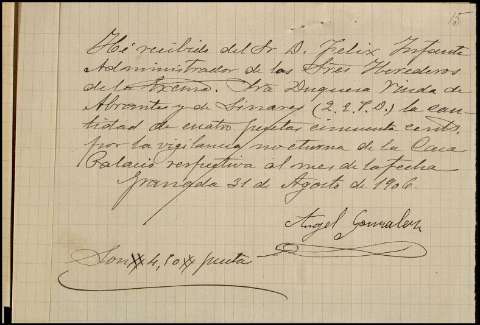 15
Hé recibido del Sr. D. Felix Infante
Administrador de los Sres Herederos
de la Excma. Sra Duquesa Viuda de
Abrantes y de Linares (Q.E.P.D.) la can-
tidad de cuatro pesetas cincuenta cents.
por la vigilancia nocturna de la Casa
Palacio respectiva al mes de la fecha
Granada 31 de Agosto de 1906.
Angel Gonzalez
Son 4,50 pesetas